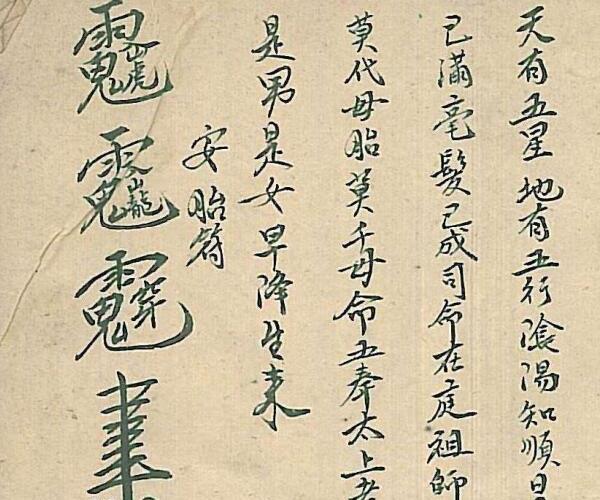 天有五星地有五行陰陽知順日
已滿毫髮已成司命在庭祖師
莫伐母胎莫千母命五奉太上老
是男是女早降生来
安胎符